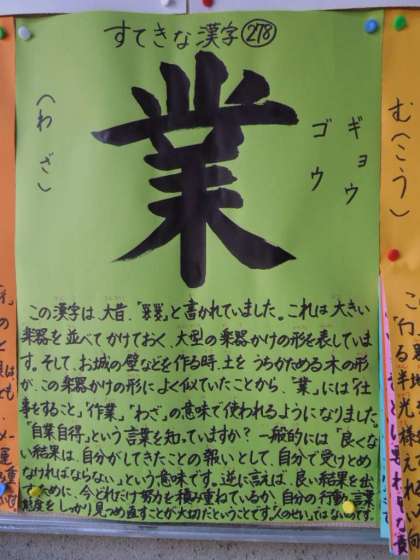 すてきな漢字278
業
ギョウ
ゴウ
(わざ)
この漢字は、大昔、「」と書かれていました。これは大きい
楽器を並べてかけておく、大型の楽器かけの形を表していま
す。そして、お城の壁などを作る時、土をうちかためる木の形
が、この楽器かけの形によく似ていたことから、「業」には「仕
事をすること」「作業」「わざ」の意味で使われるようになりました。
「自業自得」という言葉を知っていますか?一般的には「良くな
い結果は、自分がしてきたことの報いとして、自分で受けとめ
なければならない」という意味です。逆に言えば、良い結果を出
すために、今どれだけ努力を積み重ねているか、自分の行動、言葉、
態度をしっかり見つめ直すことが大切だということです。人のせいではないのです。
む(こう)